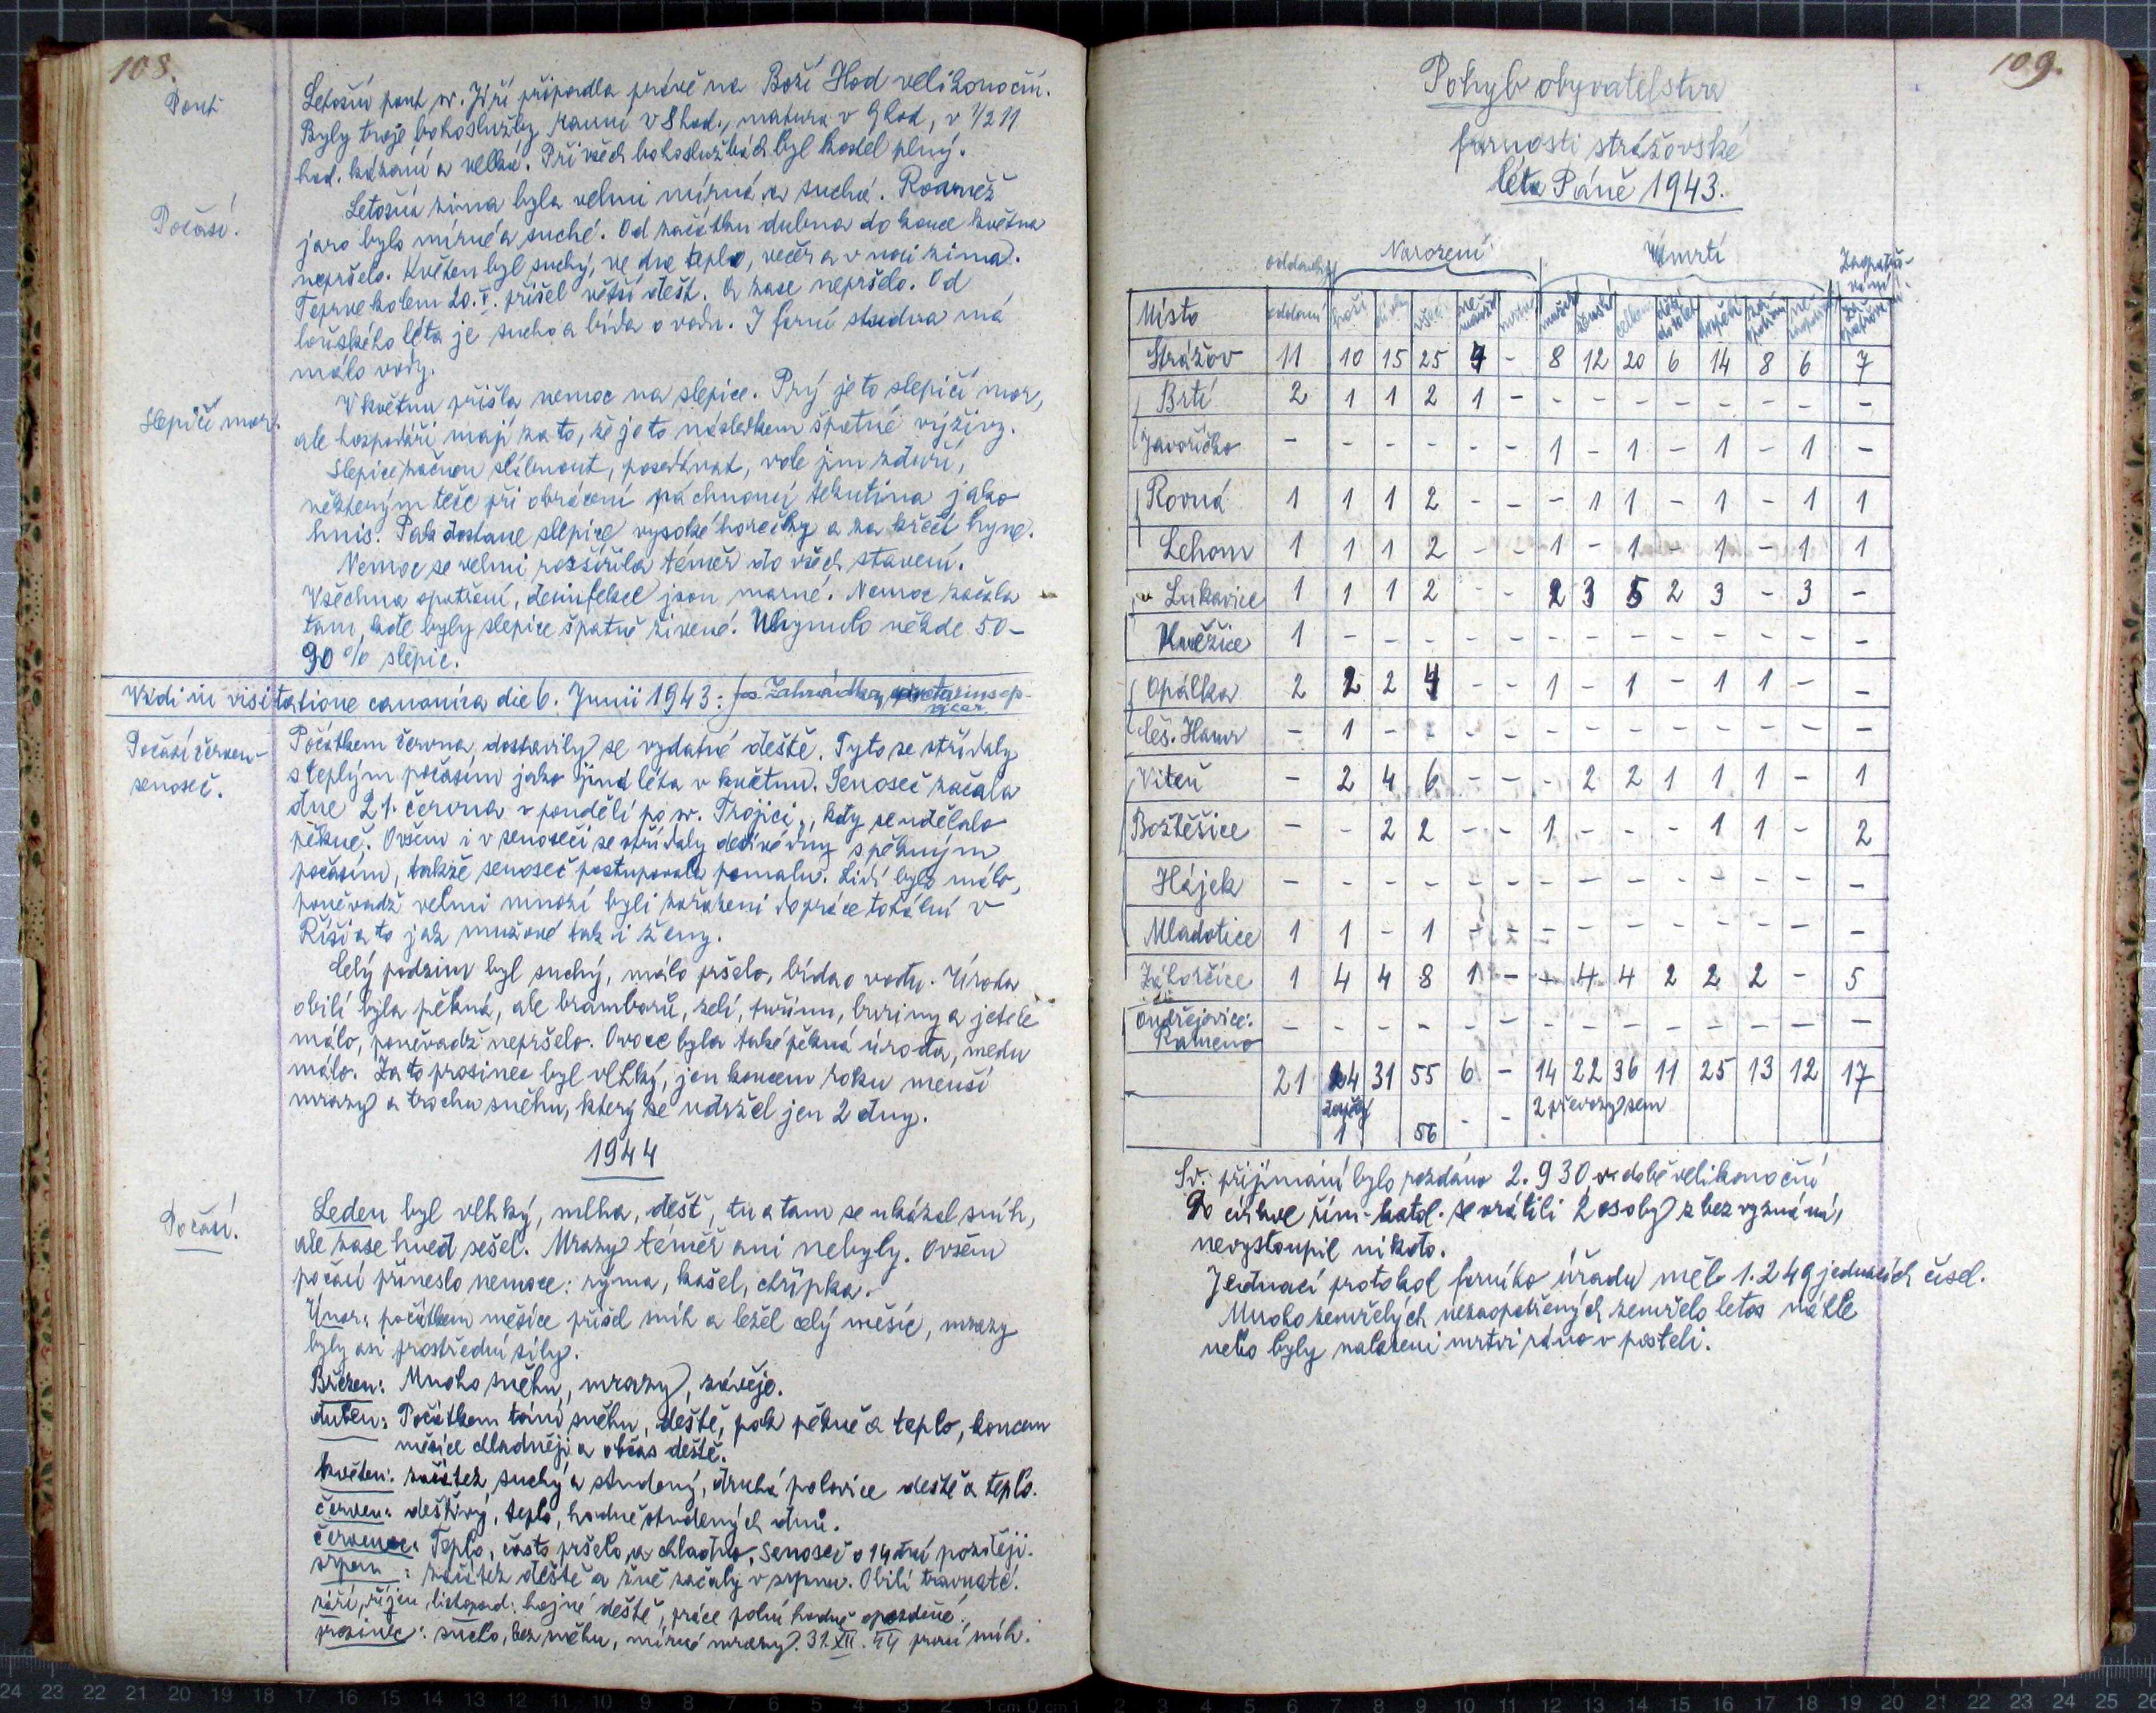 108.
Pouť
Letošní pouť sv. Jiří připadla právě na Boží Hod velikonoční.
Byly troje bohoslužby ranní v 8 hod., matura v 9 hod, v 1/2 11
hod. kázání a velká. Při všech bohoslužbách byl kostel plný.
Počasí.
Letošní zima byla velmi mírná a suchá. Rovněž
jaro bylo mírné a suché. Od začátku dubna do konce května
nepršelo. Květen byl suchý, ve dne teplo, večer a v noci zima.
Teprve kolem 20. V. přišel větší déšť. A zase nepršelo. Od
loňského léta je sucho a bída o vodu. I farní studna má
málo vody.
Slepičí mor.
V květnu přišla nemoc na slepice. Prý je to slepičí mor,
ale hospodáři mají za to, že je to následkem špatné výživy.
Slepice začnou slábnout, posedávat, vole jim ztuří,
některým teče při obrácení páchnoucí tekutina jako
hnis. Pak dostane slepice vysoké horečky a za křečí hyne.
Nemoc se velmi rozšířila téměř do všech stavení.
Všechna opatření, desinfekce jsou marné. Nemoc začala
tam, kde byly slepice špatně živené. Uhynulo někde 50-
90% slepic.
Vidi in visitatione canonica die 6. Junii 1943: Jos. Zahrádka,
vicar.
Počasí červen-
senoseč.
Počátkem června dostavily se vydatné deště. Tyto se střídaly
s teplým počasím jako jiná léta v květnu. Senoseč začala
dne 21. června v pondělí po sv. Trojici, kdy se udělalo
pěkně. Ovšem i v senoseči se střídaly deštivé dny s pěkným
počasím, takže senoseč postupovala pomalu. Lidí bylo málo,
poněvadž velmi mnozí byli zařazeni do práce totální v
Říši a to jak mužové tak i ženy.
Celý podzim byl suchý, málo pršelo, bída o vodu. Úroda
obilí byla pěkná, ale bramborů, zelí, tuřínu, buriny a jetele
málo, poněvadž nepršelo. Ovoce byla také pěkná úroda, medu
málo. Za to prosinec byl vlhký, jen koncem roku menší
mrazy a trochu sněhu, který se udržel jen 2 dny.
1944
Počasí.
Leden byl vlhký, mlha, déšť, tu a tam se ukázal sníh,
ale zase hned sešel. Mrazy téměř ani nebyly. Ovšem
počasí přineslo nemoce: rýma, kašel, chřipka.
Únor: počátkem měsíce přišel sníh a ležel celý měsíc, mrazy
byly asi prostřední síly.
Březen: Mnoho sněhu, mrazy, závěje.
duben: Počátkem tání sněhu, deště, pak pěkně a teplo, koncem
měsíce chladněji a občas deště.
květen: začátek suchý a studený, druhá polovice deště a teplo.
červen: deštivý, teplo, hodně studených dnů.
červenec: Teplo, často pršelo, a chladno, senoseč o 14 dní později.
srpen: začátek deště a žně začaly v srpnu. Obilí travnaté.
září, říjen, listopad: hojné deště, práce polní hodně opozděné.
prosinec: sucho, bez sněhu, mírné mrazy. 31. XII. 44 první sníh.
109.
Pohyb obyvatelstva
farnosti strážovské
léta Páně 1943.
oddavky Narození Úmrtí Zaopatřování
Místo oddaní hoši dívky všech mužské ženské celkem dospělí
Strážov 11 10 15 25 4 - 8 12 20 6 14 8 6 7
Brtí 2 1 1 2 1 - - - - - - - - -
Javoříčko - - - - - - 1 - 1 - 1 - 1 -
Rovná 1 1 1 2 - - - 1 1 - 1 - 1 1
Lehom 1 1 1 2 - - 1 - 1 - 1 - 1 1
Lukavice 1 1 1 2 - - 2 3 5 2 3 - 3 -
Kněžice 1 - - - - - - - - - - - - -
Opálka 2 2 2 4 - - 1 - 1 - 1 1 - -
Čes. Hamr - 1 - - - - - - - - - - - -
Viteň - 2 4 6 - - - 2 2 1 1 1 - 1
Božtěšice - - 2 2 - - 1 - - - 1 1 - 2
Hájek - - - - - - - - - - - - - -
Mladotice 1 1 - 1 - - - - - - - - - -
Zahorčice 1 4 4 8 1 - - 4 4 2 2 2 - 5
Ondřejovice: - - - - - - - - - - - - - -
Kameno
21 24 31 55 6 - 14 22 36 11 25 13 12 17
2 převozy sem
1 56 - -
Sv. přijímání bylo rozdáno 2.930 v době velikonoční
Do církve řím-katol. se vrátili 2 osoby z bez vyznání,
nevystoupil nikdo.
Jednací protokol farního úřadu měl 1.249 jednacích čísel.
Mnoho zemřelých nezaopatřených zemřelo letos náhle
nebo byly nalezeni mrtvi ráno v posteli.